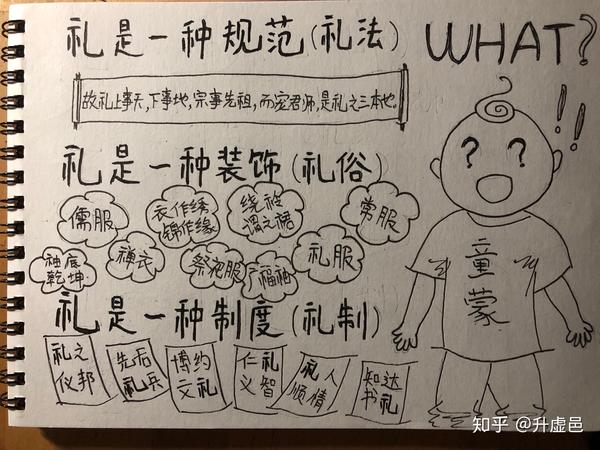 礼是一种规范(礼法)
WHAT?
!!
故礼上事天,下事地,宗事先祖,而宠君师,是礼之三本也。
礼是一种装饰(礼俗)
? ?
儒服
衣作绣
锦作缘
绕被
谓之裙
常服
袖底
乾坤
禅衣
祭祀服
广福袖
礼服
童
蒙
礼是一种制度(礼制)
礼之
仪邦
先后
礼兵
博约
文礼
仁礼
义智
礼人
顺情
知达
书礼
知乎 @升虚邑